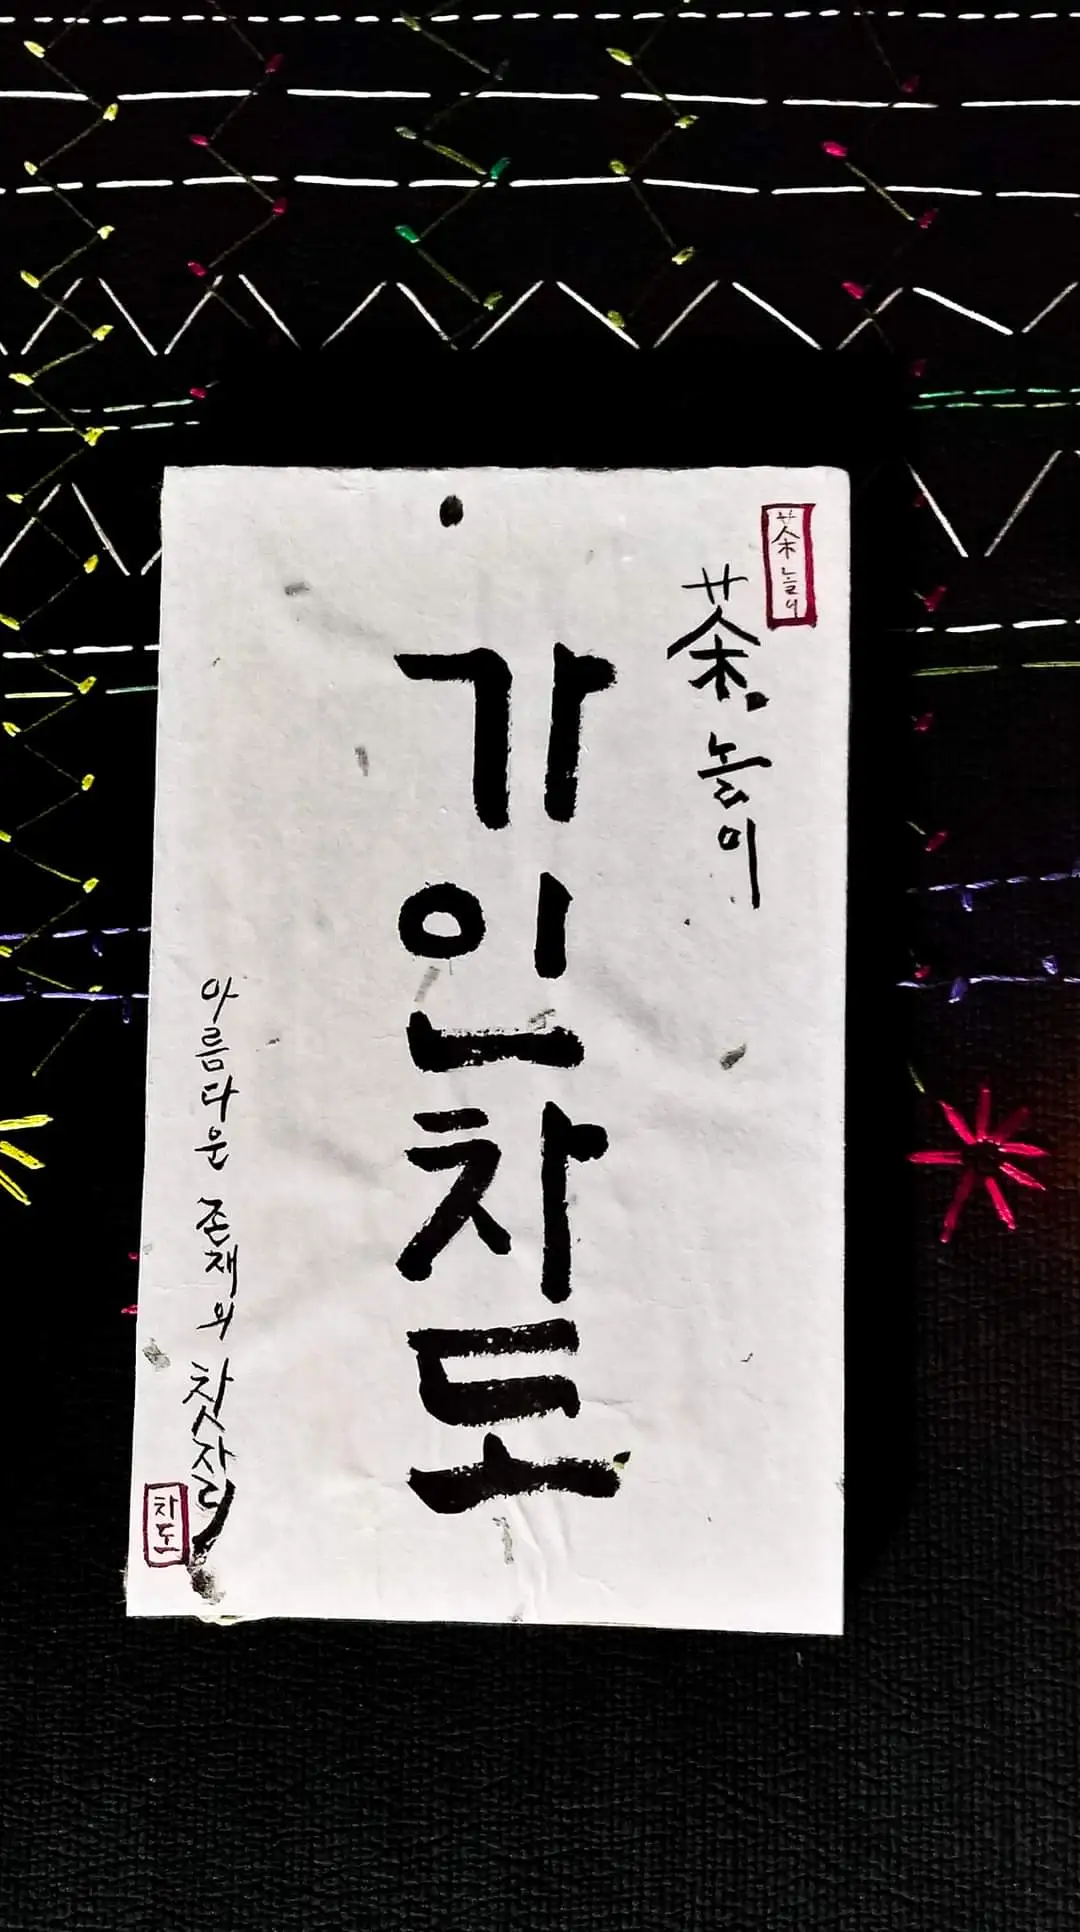 茶놀이
茶놀이
가인차도
아름다운 존재의 찻자리
차도